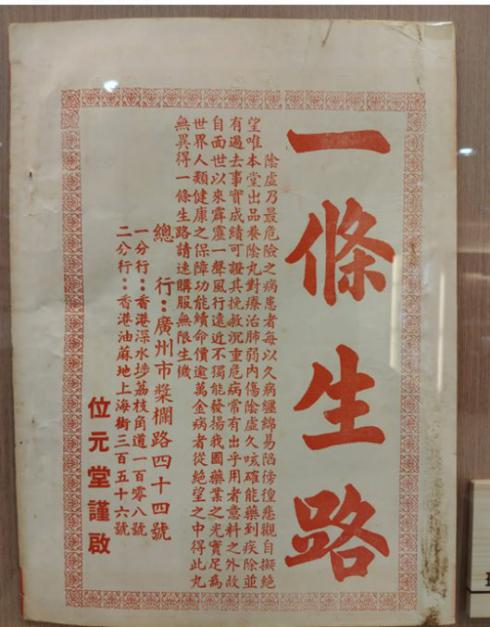 一條生路
陰虛乃最危險之病患者每以久病纒綿易陷傍徨悲觀自擬絕
望唯本堂出品養陰丸對療治肺弱內傷陰虛久咳確能藥到疾除並
有過去事實成績可證其挽救沉重危病常有出乎用者意料之外故
自面世以來霹靂一聲風行遠近不獨能發揚我國藥業之光實足為
世界人類健康之保障功能續命價逾萬金病者從絕望之中得此丸
無異得一條生路請速購服無限生機
總行：廣州市槳欄路四十四號
一分行：香港深水埗荔枝角道一百零八號
二分行：香港油蔴地上海街三百五十六號
位元堂謹啟